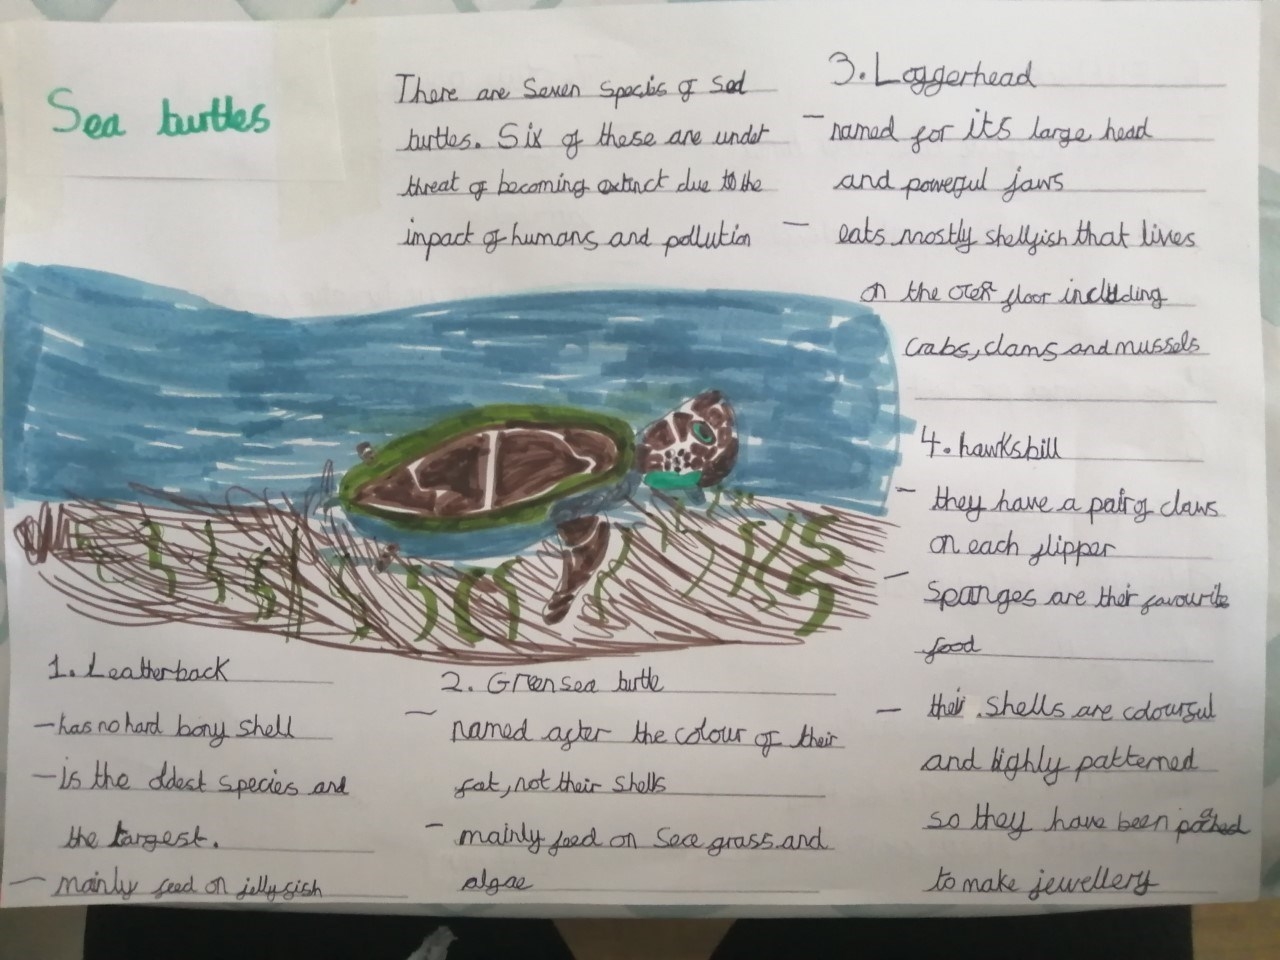 Sea turtles
There are Seven species of sea
turtles. Six of these are under
threat of becoming extinct due to the
impact of humans and pollution
1. Leatherback
- has no hard bony shell
- is the oldest species and
the largest.
- mainly feed on jellyfish
2. Green sea turtle
- named after the colour of their
fat, not their shells
- mainly feed on Sea grass and
algae
3. Loggerhead
- named for its large head
and powerful jaws
- eats mostly shellfish that lives
on the floor including
Crabs, clams and mussels
4. hawksbill
- they have a pair of claws
on each flipper
- Sponges are their favourite
food
- their shells are colourful
and highly patterned
so they have been
to make jewellery